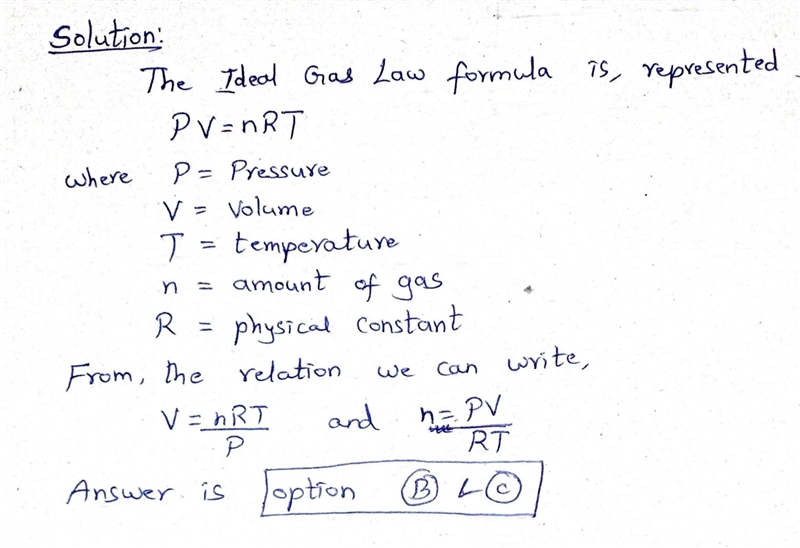 Solution:
The Ideal Gas Law formula is, represented
PV=nRT
where P = Pressure
V = Volume
T = temperature
n = amount of gas
R = physical constant
From, the relation we can write,
V = nRT/P and n = PV/RT
Answer is option (B) & (C)